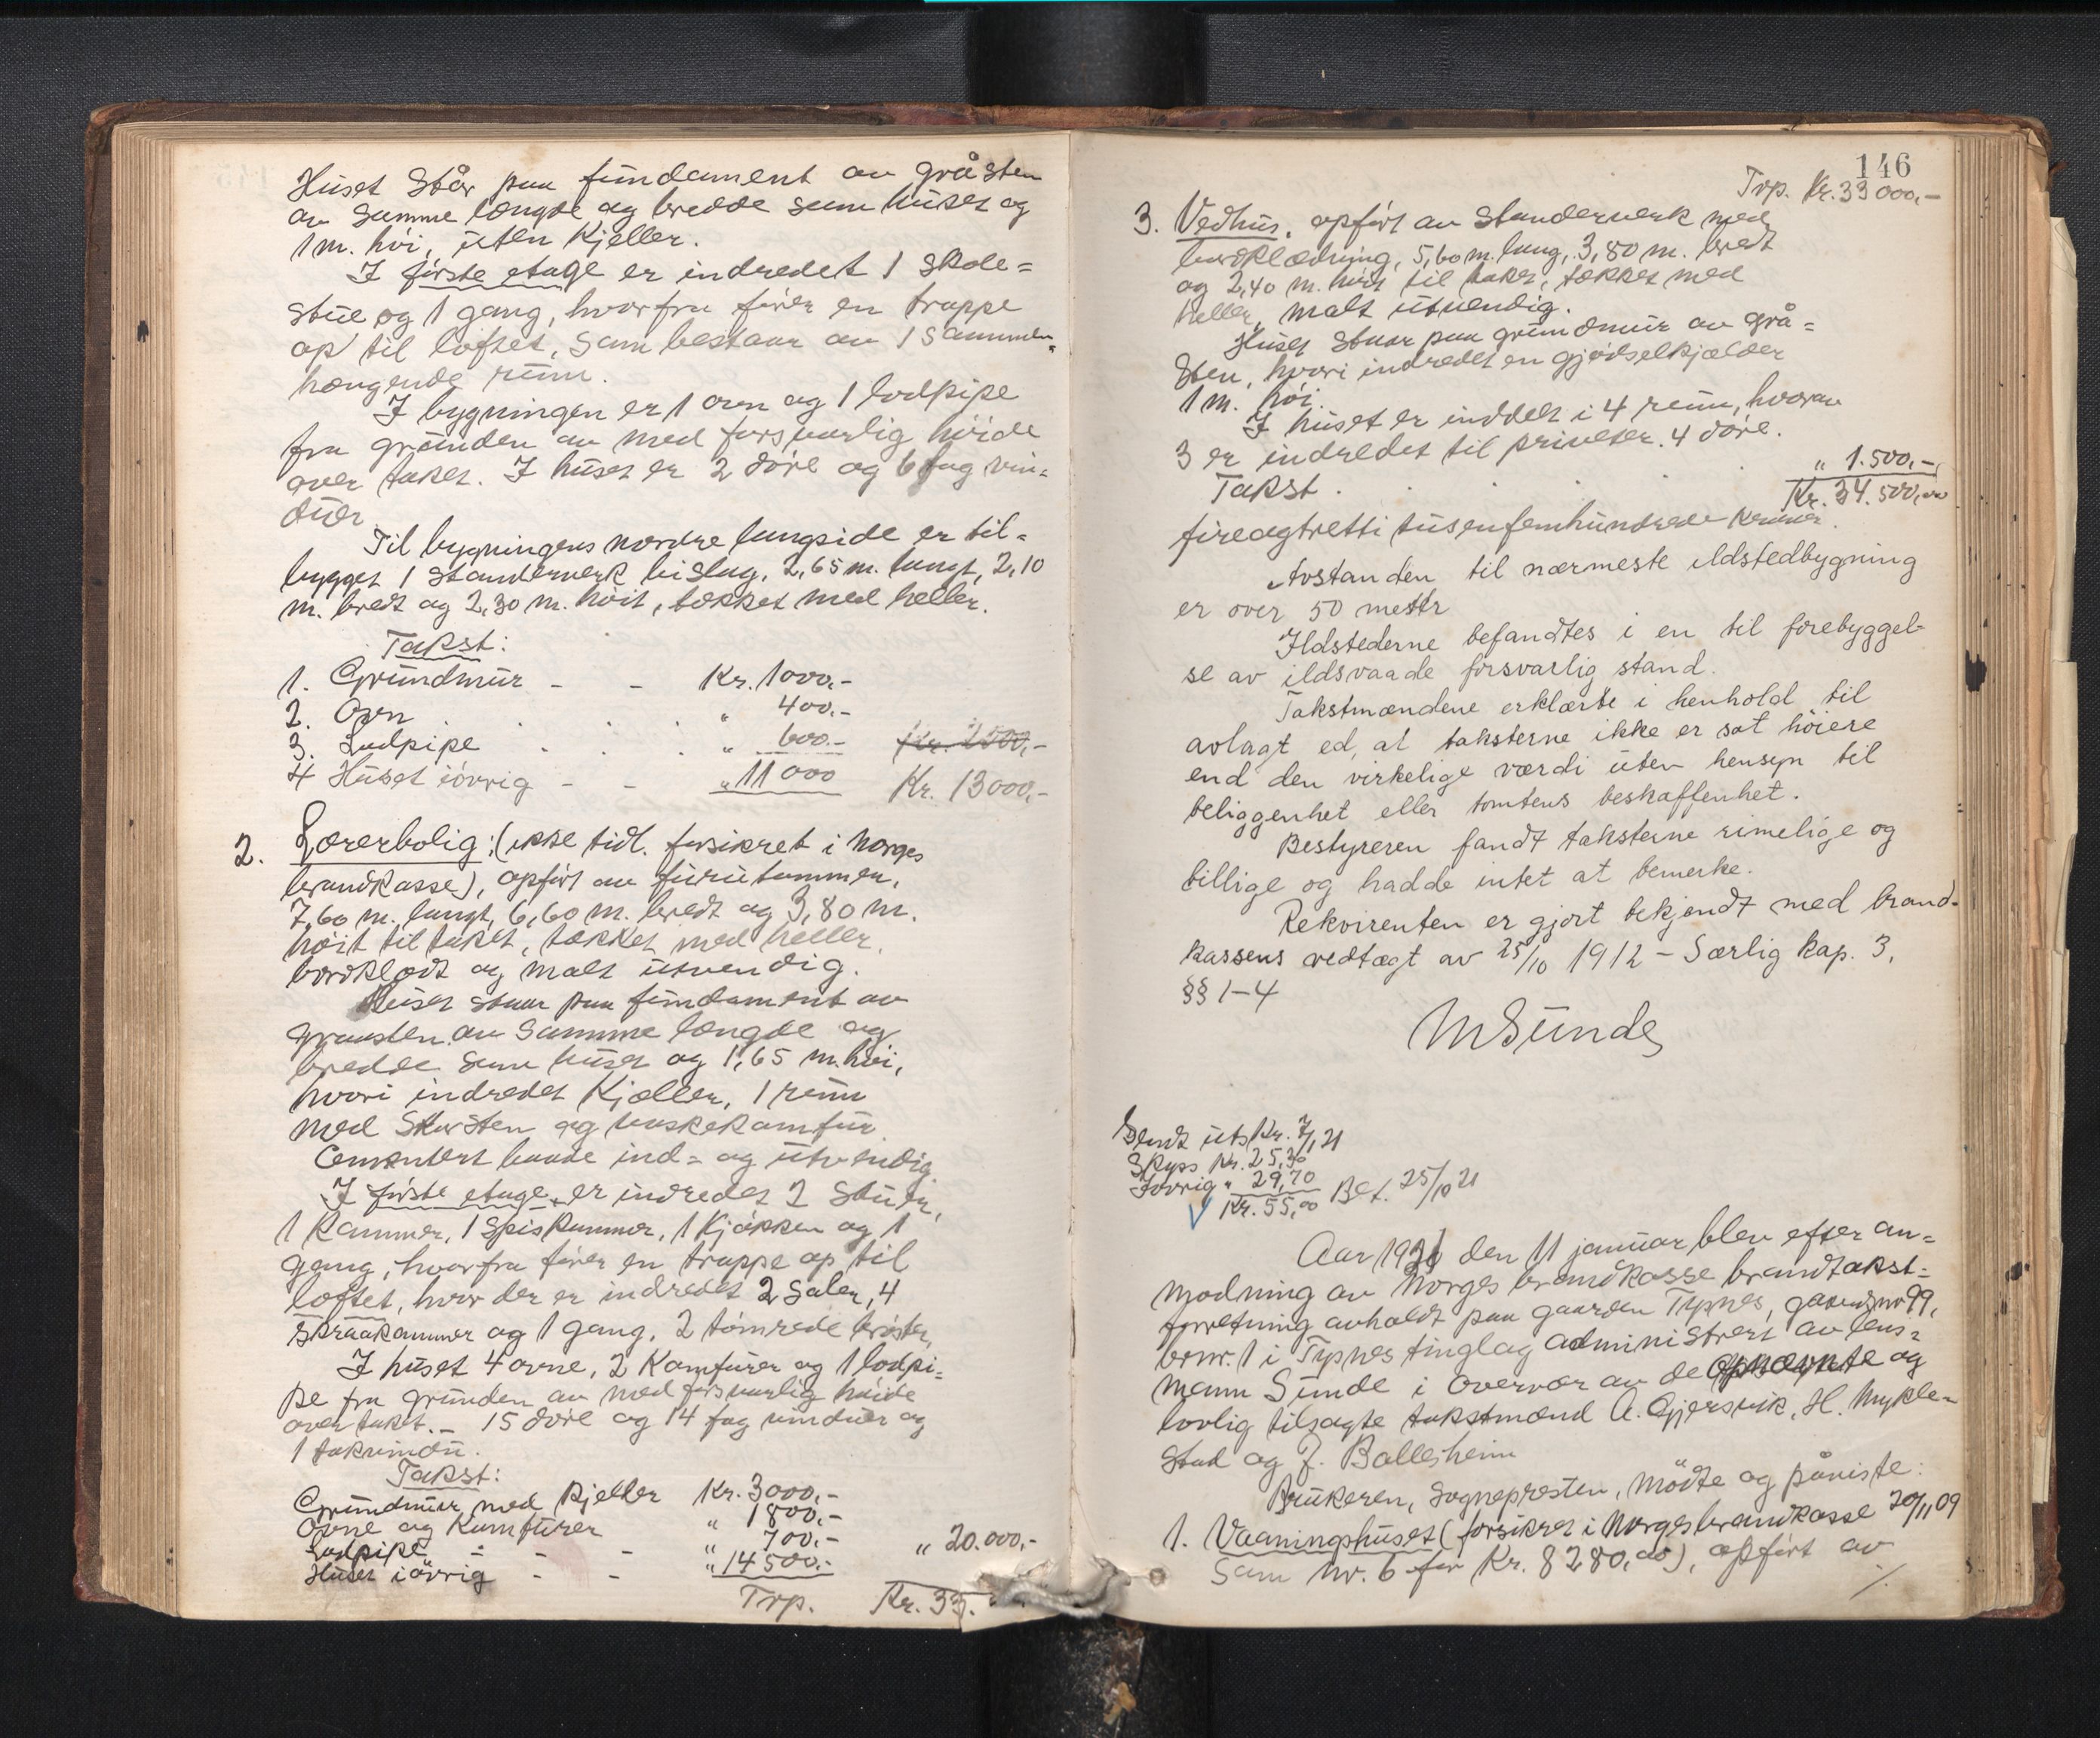 Huset Står paa fundament av gråsten
av samme længde og bredde som huset og
1 m. høi, uten Kjeller.
I første etage er indredet 1 Skole=
stue og 1 gang, hvorfra fører en trappe
op til loftet, som bestaar av 1 sammen=
hængende rum.
I bygningen er 1 ovn og 1 lodpipe
fra grunden av med forsvarlig høide
over taket. I huset er 2 døre og 6 fag vin=
duer
Til bygningens nordre langside er til=
bygget 1 Standerverk bislag, 2,65 m. langt, 2,10
m. bredt og 2,30 m. høit, tækket med heller.
Takst:
1. Grundmur - - Kr. 1000,-
2. Ovn . . . " 400,-
3. Lodpipe . . . " 600.- Kr. 2000,-
4 Huset iøvrig - - " 11 000 Kr. 13000,-
2. Lærerbolig: (ikke tidl. forsikret i Norges
brandkasse), opført av furutømmer,
7,60 m. langt, 6,60 m. bredt og 3,80 m.
høit til taket, tækket med heller,
bordklædt og malt utvendig.
Huset staar paa fundament av
graasten av samme længde og
bredde som huset og 1,65 m. høi,
hvori indredet Kjeller, 1 rum
med Skorsten og vaskekomfur
Cementert baade ind= og utvendig.
I første etage er indredet 2 Stuer,
1 Kammer, 1 Spiskammer, 1 Kjøkken og 1
gang, hvorfra fører en trappe op til
loftet, hvor der er indredet 2 Saler, 4
Skraakammer og 1 gang. 2 tømrede brøster,
I huset 4 ovne, 2 Komfurer og 1 lodpi=
pe fra grunden av med forsvarlig høide
over taket. - 15 døre og 14 fag vinduer og
1 takvindu.
Takst:
Grundmur med Kjeller Kr. 3000,-
Ovne og Komfurer " 1800,-
Lodpipe - - " 700,-
Huset iøvrig - - " 14500.- " 20.000,-
Trp. Kr. 33.
146
Trp. Kr. 33000,-
3. Vedhus, opført av Standerverk med
bordklædning, 5,60 m. lang, 3,80 m. bredt
og 2,40 m. høit til taket, tækket med
heller, malt utvendig.
Huset staar paa grundmur av grå=
sten, hvori indredet en gjødselkjælder
1 m. høi.
I huset er inddelt i 4 rum, hvorav
3 er indredet til priveter. 4 døre.
Takst . . . . " 1.500,-
Kr. 34.500,00
fireogtretti tusenfemhundrede Kroner.
Avstanden til nærmeste ildstedbygning
er over 50 metер
Ildstederne befandtes i en til forebyggel-
se av ildsvaade forsvarlig stand.
Takstmændene erklærte i henhold til
avlagt ed, at taksterne ikke er sat høiere
end den virkelige værdi uten hensyn til
beliggenhet eller tomtens beskaffenhet.
Bestyreren fandt taksterne rimelige og
billige og hadde intet at bemerke.
Rekvirenten er gjort bekjendt med brand-
kassens vedtægt av 25/10 1912 - Særlig Kap. 3,
§§ 1-4
M Sunde
Sendt utskr. 7/1 21
Skyss Kr. 25,30
Iøvrig " 29,70
Kr. 55,00 Bet. 25/10 21
Aar 1921 den 11 januar blev efter an=
modning av Norges brandkasse brandtakst=
forretning avholdt paa gaarden Tysnes, gaardsnr 99,
brnr. 1 i Tysnes tinglag administrert av lens=
mann Sunde i overvær av de opnævnte og
lovlig tilsagte takstmænd A. Gjersvik, H. Mykle=
stad og J. Ballesheim
Brukeren, Sognepresten, mødte og påviste:
1. Vaaningshuset (forsikret i Norges brandkasse 20/11 09
Som Nr. 6 for Kr. 8280,00), opført av
./.